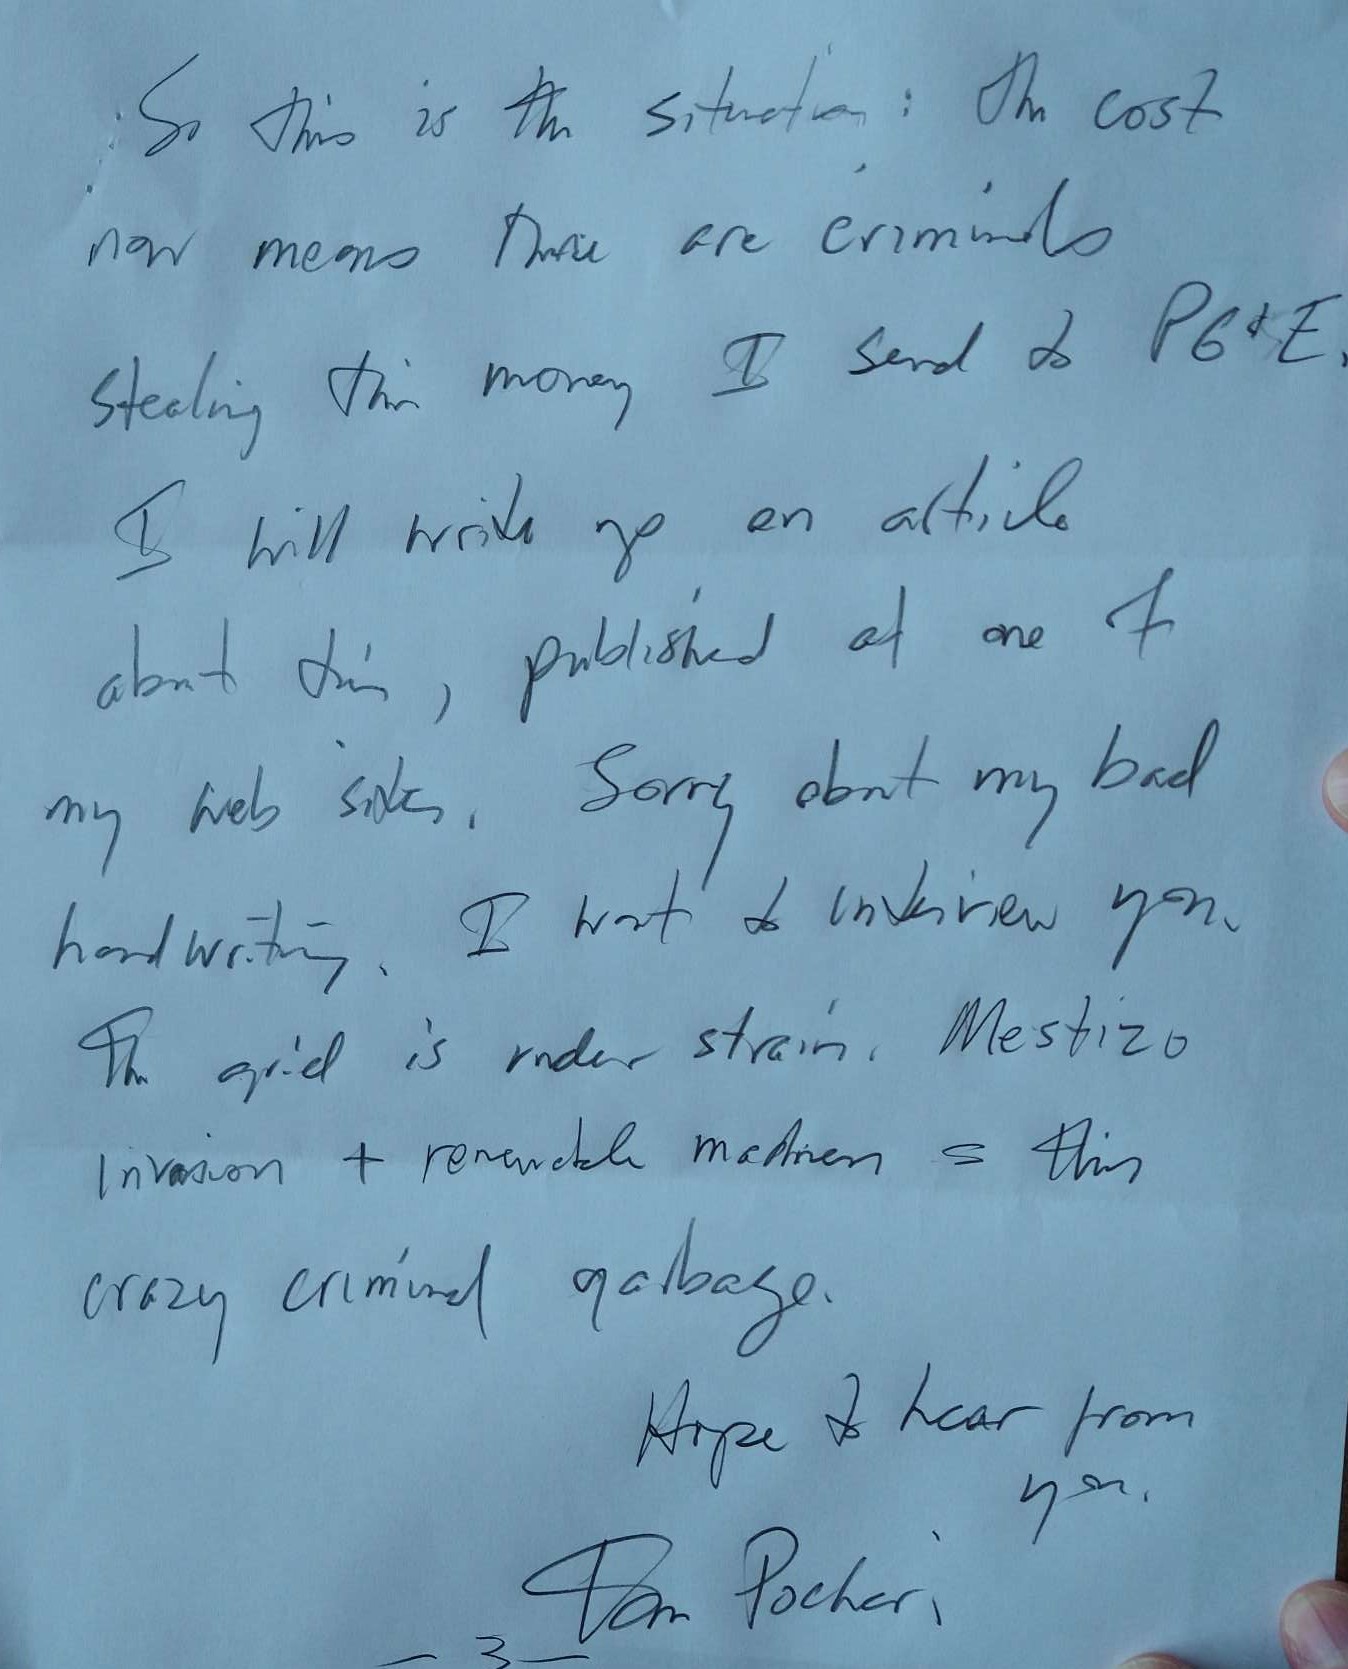 So this is the situation: The cost
now means there are criminals
stealing this money I send to PG&E.
I will write up an article
about this, published at one of
my web sites. Sorry about my bad
handwriting. I want to interview you.
The grid is under strain. Mestizo
invasion + renewable madness = this
crazy criminal garbage.
Hope to hear from
you.
Tom Pochari
- 3 -